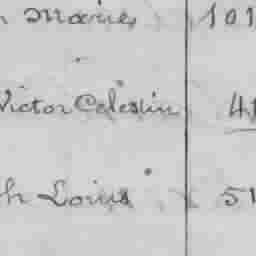 Marie 101
Victor Celestin 41
h Louis 51